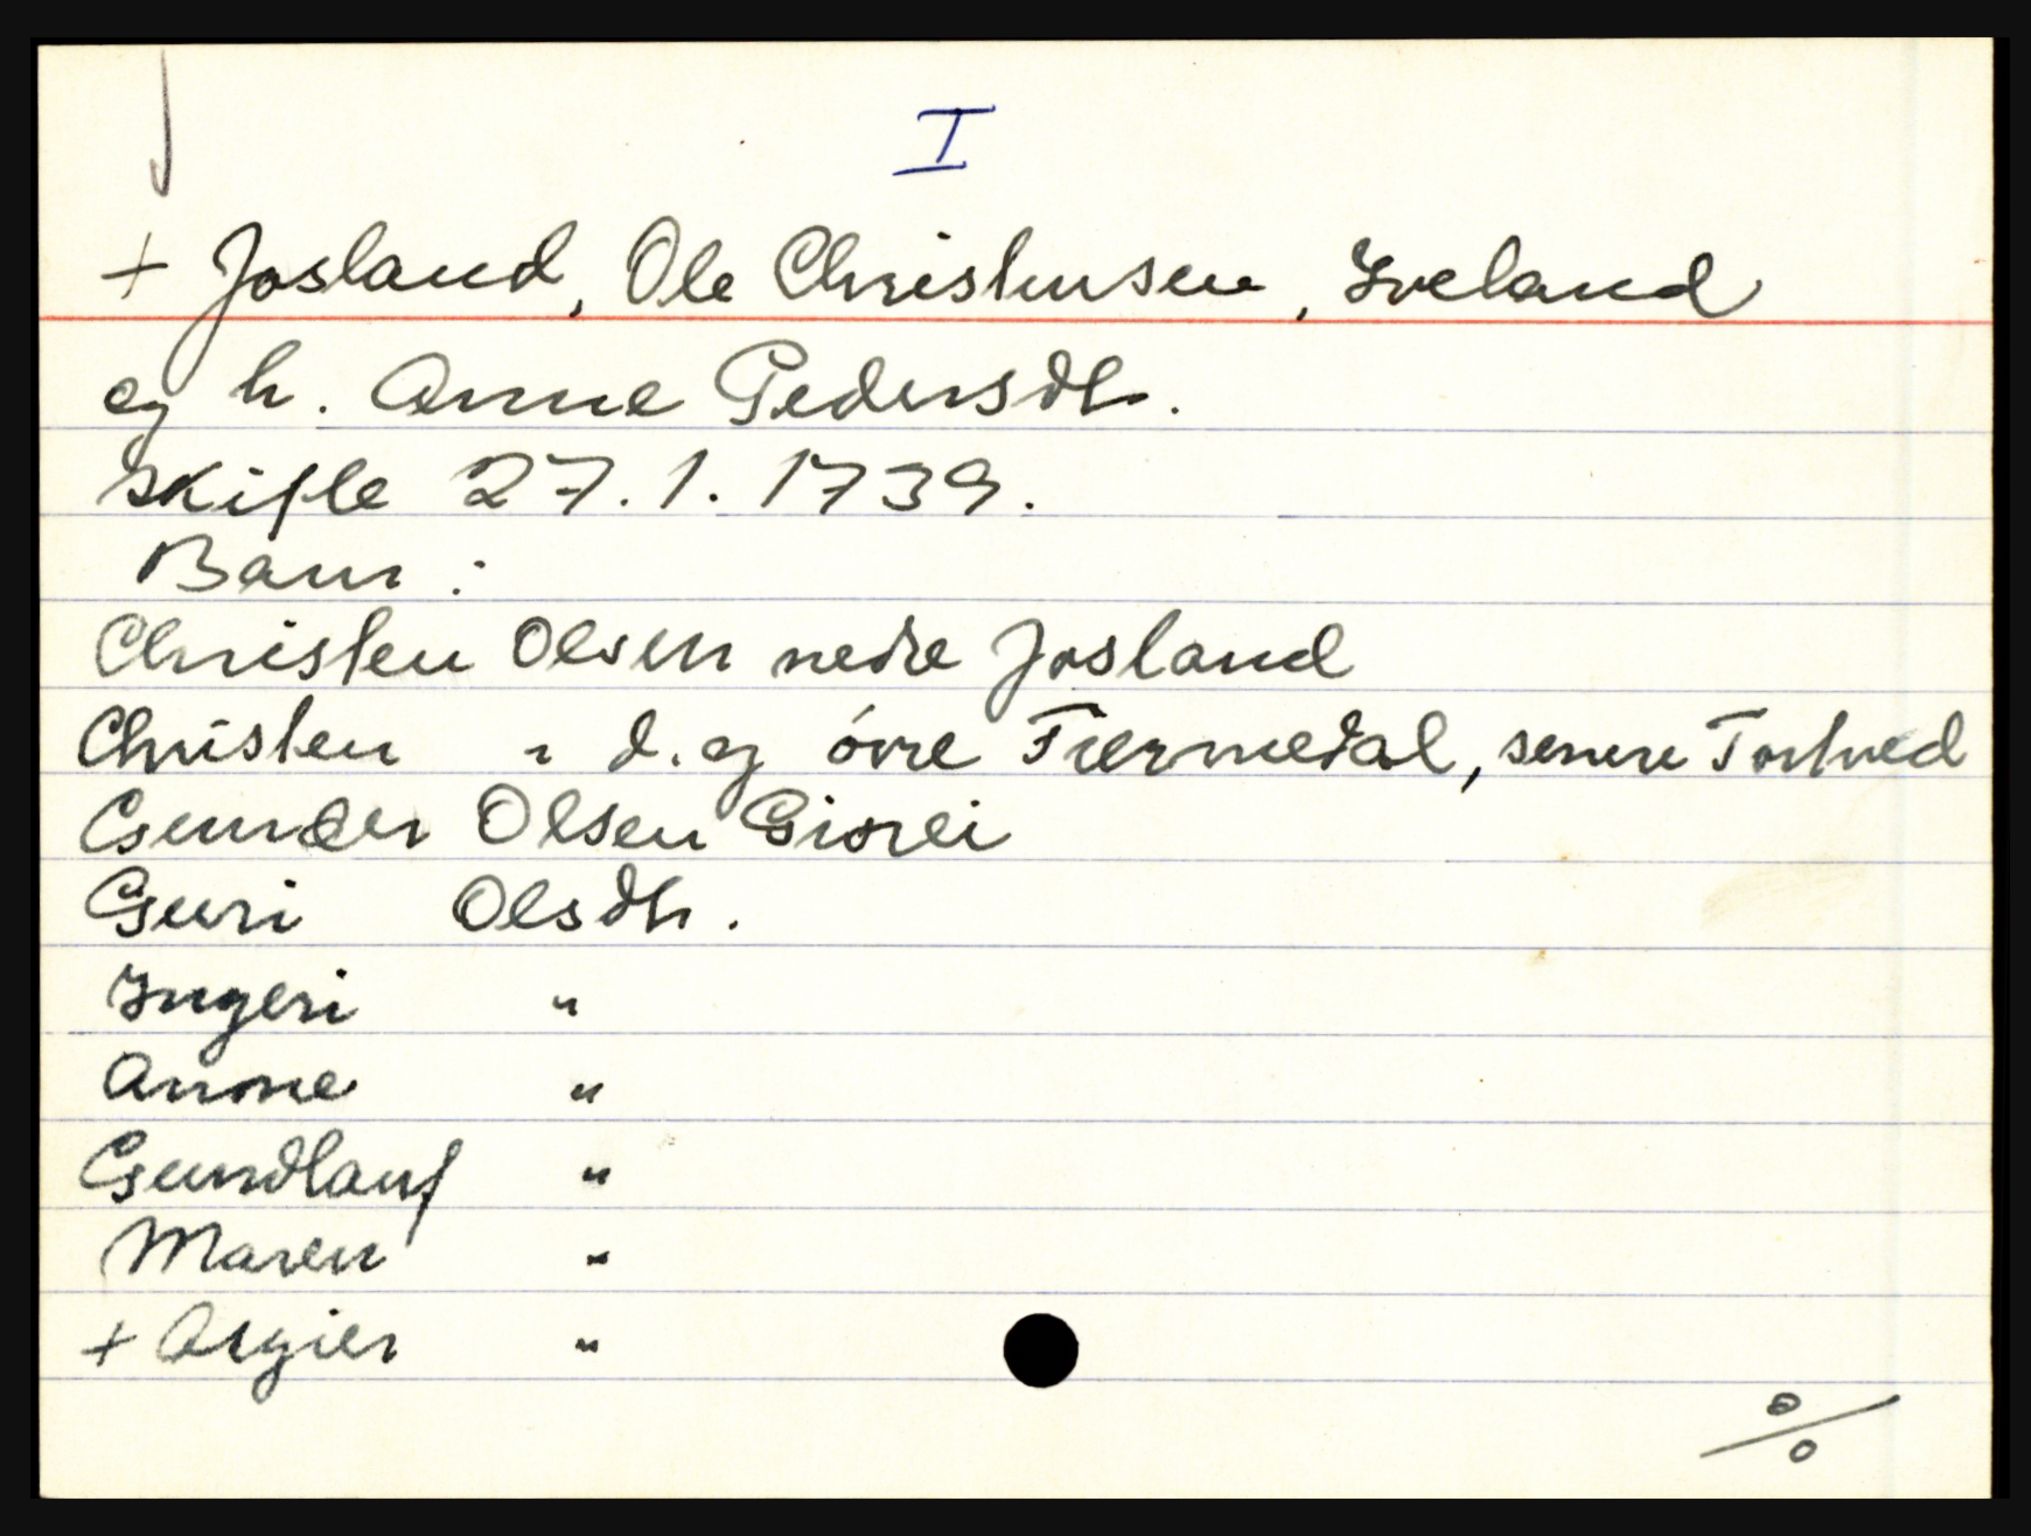 I
+ Josland, Ole Christensen, Iveland
og h. Anne Pedersdtr.
skifte 27.1.1739.
Barn:
Christen Olsen nedre Josland
Christen " d.og óvre Fiermedal, senere Tortved
Gunder Olsen Giorei
Guri Olsdtr.
Ingeri "
Anne "
Gundlauf "
Maren "
+ Asgier "
%